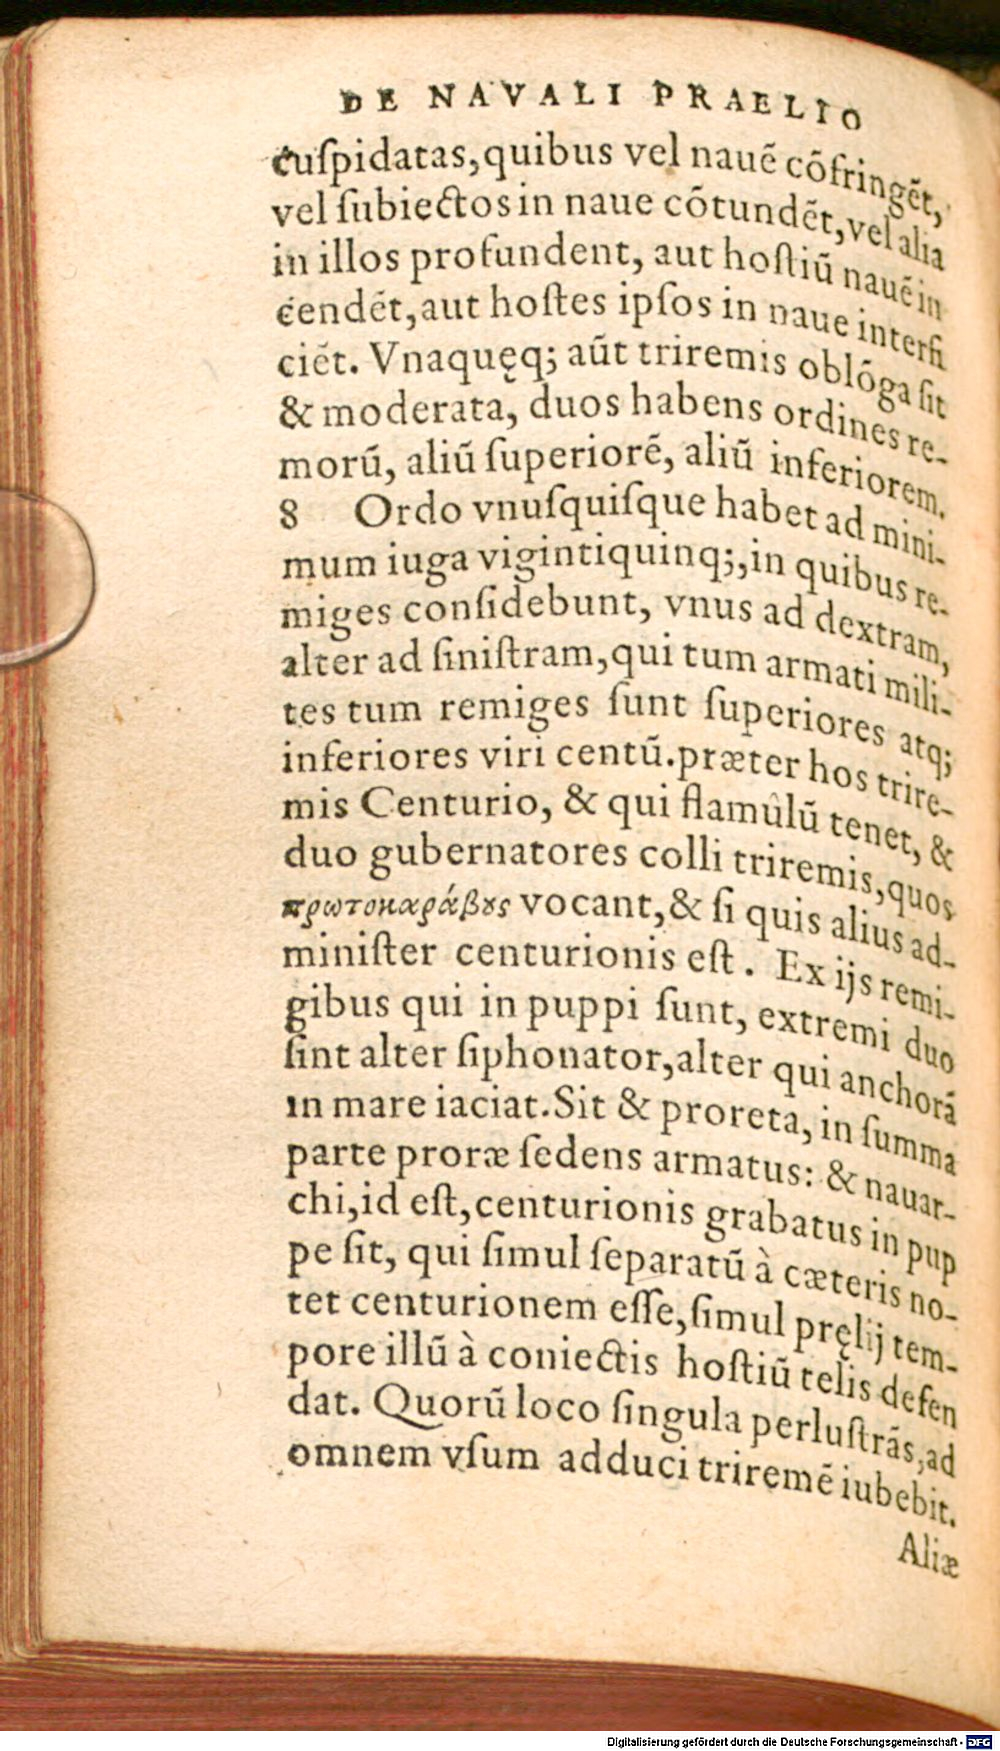 DE NAVALI PRAELIO
cuſpidatas, quibus vel nauē cōfringēt,
vel ſubiectos in naue cōtundēt, vel alia
in illos profundent, aut hoſtiū nauē in
cendēt, aut hoſtes ipſos in naue interfi
ciēt. Vnaquęq; aūt triremis oblōga ſit
& moderata, duos habens ordines re-
morū, aliū ſuperiorē, aliū inferiorem.
8 Ordo vnuſquiſque habet ad mini-
mum iuga vigintiquinq;, in quibus re-
miges conſidebunt, vnus ad dextram,
alter ad ſiniſtram, qui tum armati mili-
tes tum remiges ſunt ſuperiores atq;
inferiores viri centū. præter hos trire-
mis Centurio, & qui flamūlū tenet, &
duo gubernatores colli triremis, quos
πρωτοκαράβȣς vocant, & ſi quis alius ad-
miniſter centurionis eſt. Ex ijs remi-
gibus qui in puppi ſunt, extremi duo
ſint alter ſiphonator, alter qui anchorā
in mare iaciat. Sit & proreta, in ſumma
parte proræ ſedens armatus: & nauar-
chi, id eſt, centurionis grabatus in pup
pe ſit, qui ſimul ſeparatū à cæteris no-
tet centurionem eſſe, ſimul pręlij tem-
pore illū à coniectis hoſtiū telis defen
dat. Quorū loco ſingula perluſtrās, ad
omnem vſum adduci triremē iubebit.
Aliæ
Digitalisierung gefördert durch die Deutsche Forschungsgemeinschaft - DFG